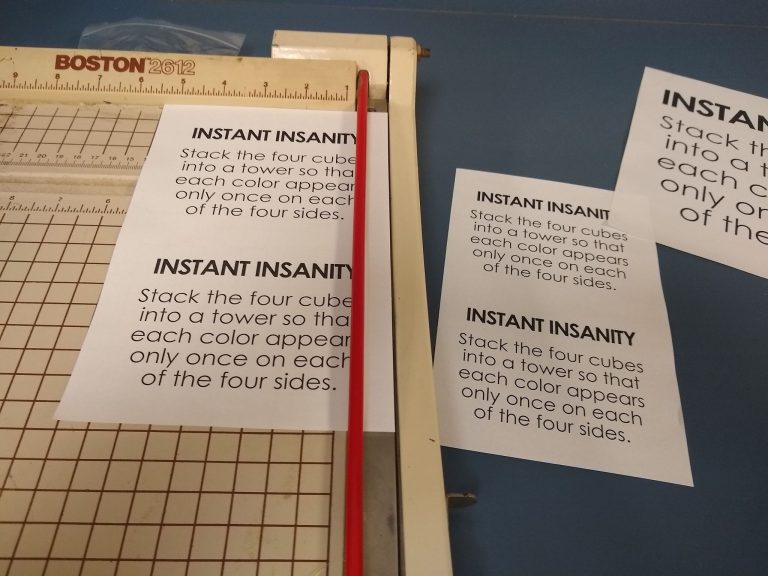 BOSTON 2612
9 8 7 6 5 4 3 2 1
INSTANT INSANITY
Stack the four cube
into a tower so tha
each color appear
only once on each
of the four sides.
INSTANT INSANITY
Stack the four cube
into a tower so tha
each color appear
only once on each
of the four sides.
INSTANT INSANIT
Stack the four cubes
into a tower so that
each color appears
only once on each
of the four sides.
INSTANT INSANITY
Stack the four cubes
into a tower so that
each color appears
only once on each
of the four sides.
INSTAN
Stack th
into a t
each c
only on
of the